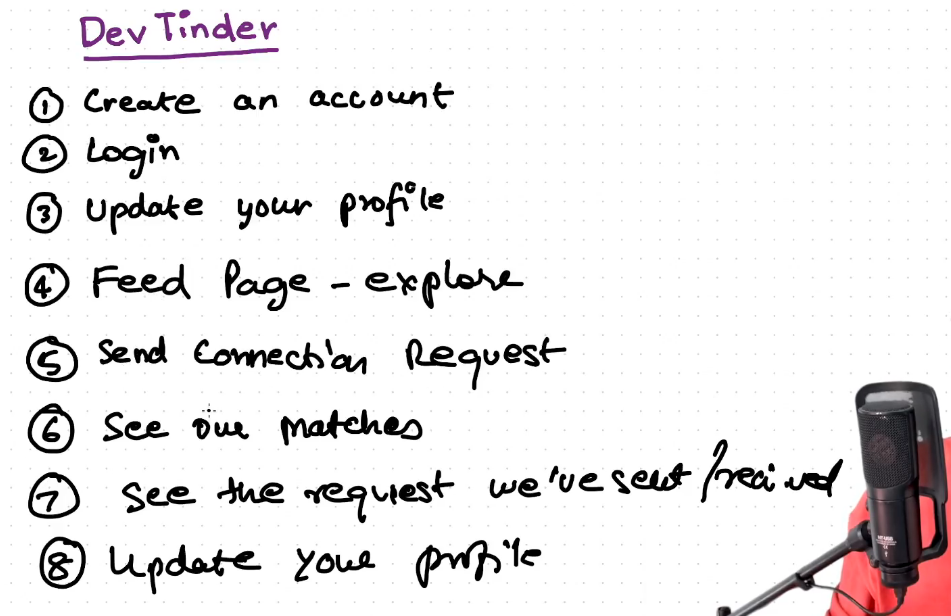 Dev Tinder
① Create an account
② Login
③ Update your profile
④ Feed Page - explore
⑤ Send Connection Request
⑥ See our matches
⑦ See the request we've sent / recived
⑧ Update your profile